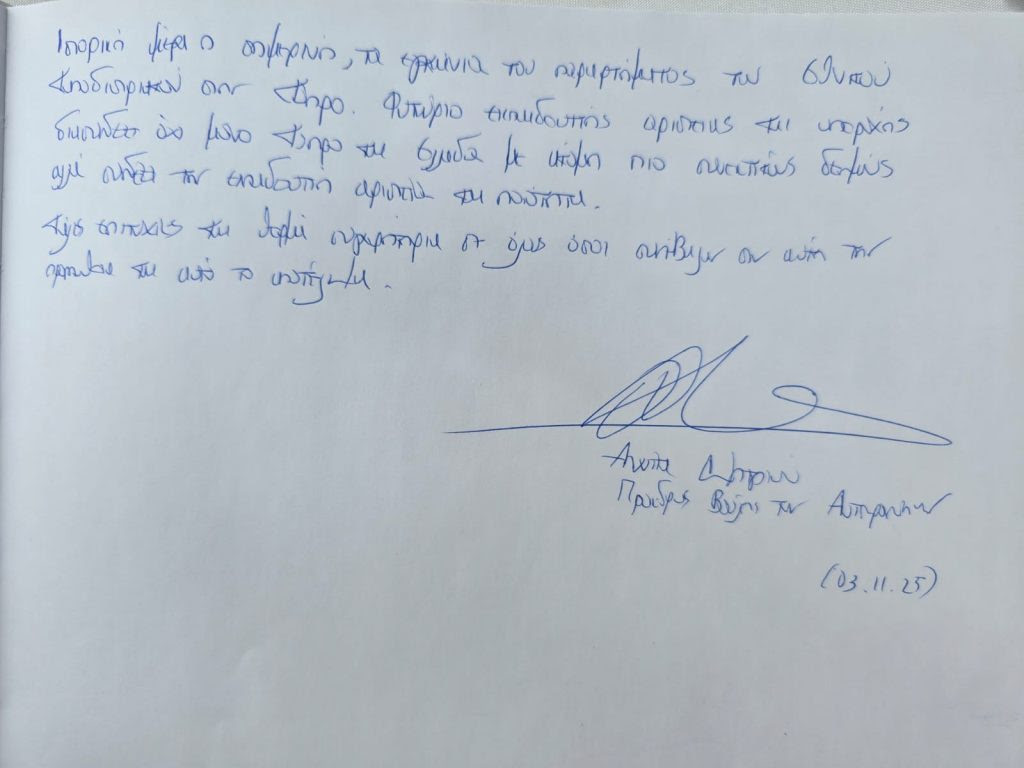 Ιστορική μέρα η σημερινή, τα εγκαίνια του παραρτήματος του Εθνικού
Καποδιστριακού στην Κύπρο. Φυτώριο εκπαιδευτικής αριστείας και υπαρχής
διασυνδέει όχι μόνο Κύπρο και Ελλάδα με ακόμη πιο συνεκτικούς δεσμούς
αλλά συνδέει την εκπαιδευτική αριστεία και ποιότητα.
Καλές επιτυχίες και θερμά συγχαρητήρια σε όλους όσοι συνέβαλαν σε αυτή την
και αυτό το αποτέλεσμα.
Αννίτα Δημητρίου
Πρόεδρος Βουλής των Αντιπροσώπων
(03.11.25)